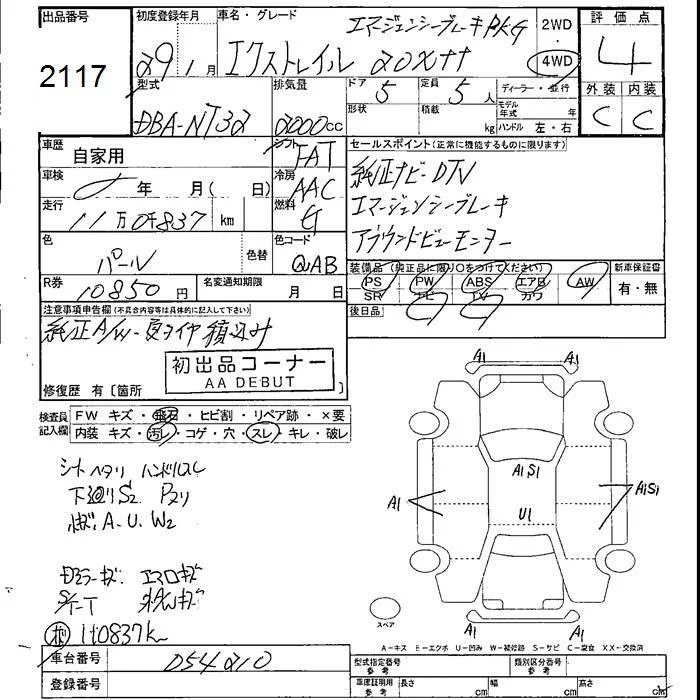 出品番号
2117
初度登録年月
29年1月
車名・グレード
エマージェンシーブレーキPKG
エクストレイル 20Xtt
2WD・4WD
評価点
4
外装 内装
C C
型式
DBA-NT32
排気量
2000cc
ドア 5
形状
定員 5人
積載 kg
ディーラー・並行
モデル年式 年
ハンドル 左・右
車歴
自家用
シフト
FAT
車検
年 月( 日)
冷房
AAC
走行
11万0千837km
燃料
G
色
パール
色替
色コード
QAB
R券
10850円
名変通知期限
月 日
セールスポイント(正常に機能するものに限ります)
純正ナビ-DTV
エマージェンシーブレーキ
アラウンドビューモニター
装備品(純正品に限り○をつけてください)
PS PW ABS エアB AW
SR ナビ TV カワ
新車保証書
有・無
後日品
注意事項申告欄(不具合内容等は具体的に記入して下さい)
純正A/W-夏タイヤ積込み
初出品コーナー
AA DEBUT
修復歴 有[箇所 ]
検査員記入欄
FW キズ・飛石・ヒビ割・リペア跡・×要
内装 キズ・汚レ・コゲ・穴・スレ・キレ・破レ
シートヘタリ ハンドルスレ
下廻りS2 Pヌリ
A.U.W2
ドアミラーキズ エアロキズ
110837km
A1
A1
A1S1
A1
A1S1
U1
A1
スペア
A-キズ E-エクボ U-凹み W-補修跡 S-サビ C-腐食 XX-交換済
車台番号
054210
登録番号
型式指定番号
参考
類別区分番号
参考
車庫証明用
参考
長さ cm 幅 cm 高さ cm